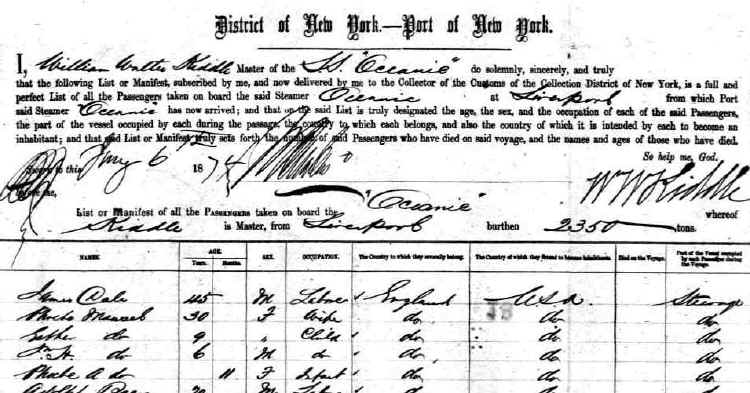 District of New York.—Port of New York.
I, William Walter Kiddle Master of the SS "Oceanic" do solemnly, sincerely, and truly
that the following List or Manifest, subscribed by me, and now delivered by me to the Collector of the Customs of the Collection District of New York, is a full and
perfect List of all the Passengers taken on board the said Steamer Oceanic at Liverpool from which Port
said Steamer Oceanic has now arrived; and that on the said List is truly designated the age, the sex, and the occupation of each of the said Passengers,
the part of the vessel occupied by each during the passage, the country to which each belongs, and also the country of which it is intended by each to become an
inhabitant; and that said List or Manifest truly sets forth the number of said Passengers who have died on said voyage, and the names and ages of those who have died.
So help me, God.
Sworn to this 6 1874
before me, WW Kiddle
List or Manifest of all the Passengers taken on board the "Oceanic" whereof
Kiddle is Master, from Liverpool burthen 2350 tons.
NAMES. AGE. SEX. OCCUPATION. The Country to which they severally belong. The Country of which they intend to become inhabitants. Died on the Voyage. Part of the Vessel occupied by each Passenger during the Voyage.
Years. Months.
James 45 M Labor England USA Steerage
30 F Wife do do do
Esther do 9 " Child do do do
do 6 M do do do do
Phoebe A do 11 F Infant do do do